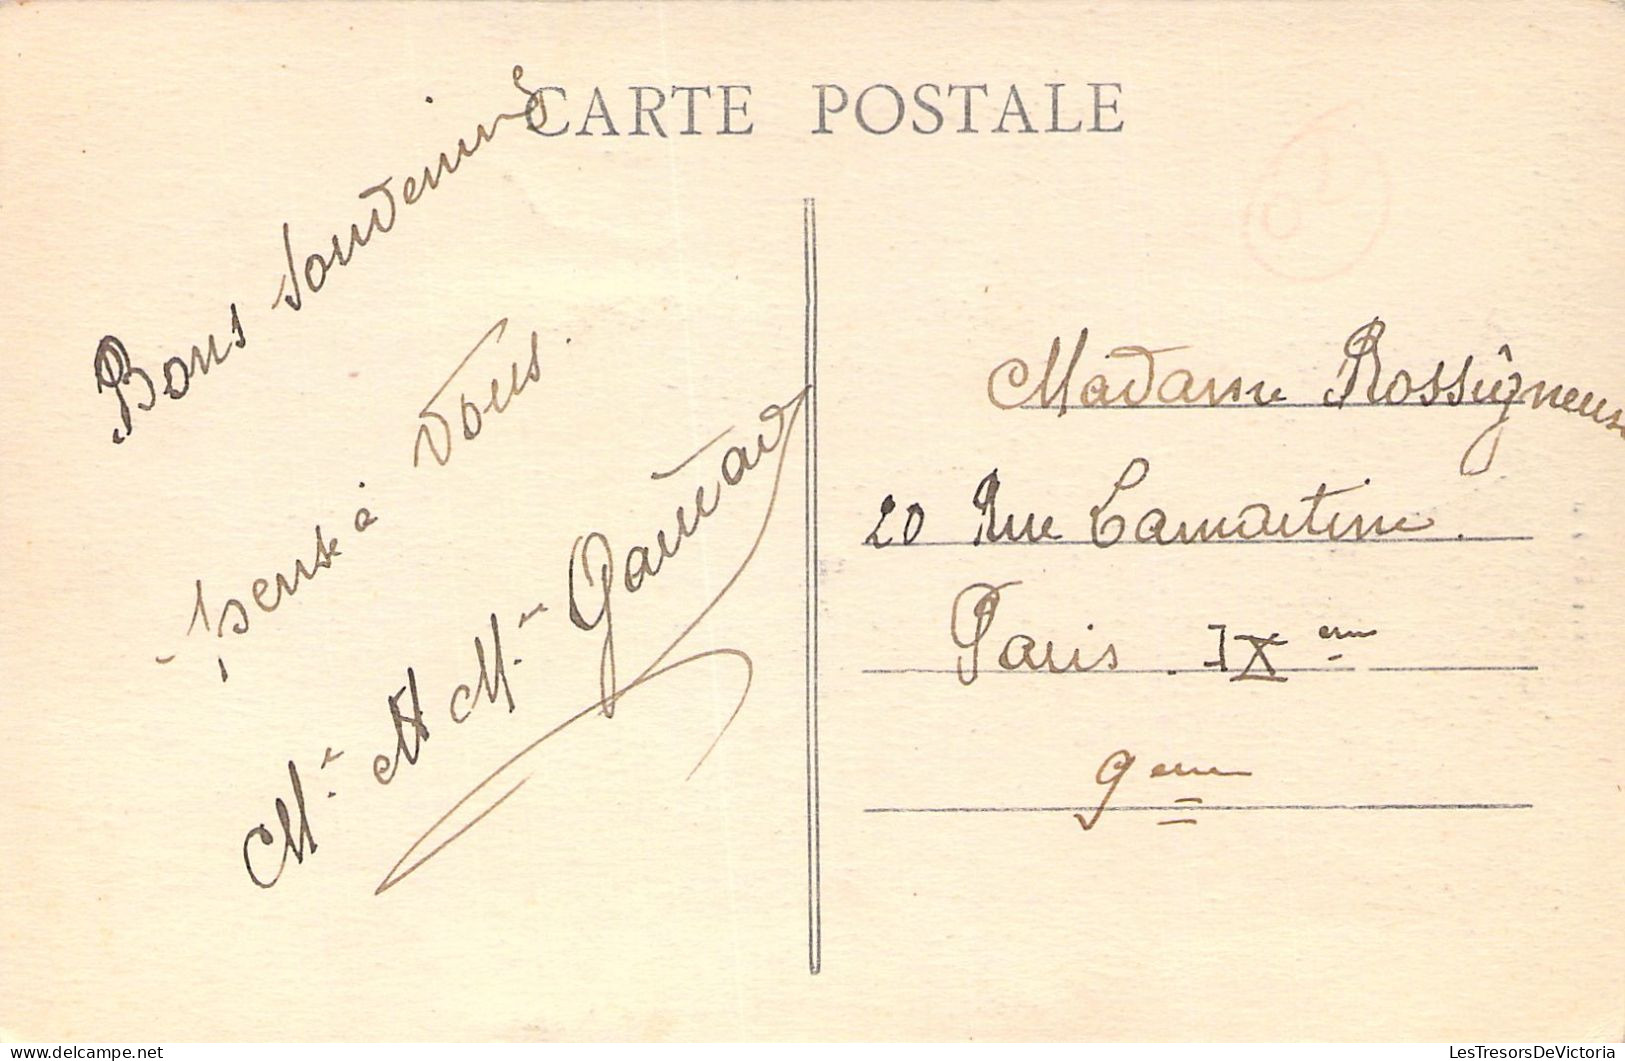 CARTE POSTALE
Bons souvenirs
pense à vous.
Mr et Mme
Madame Rossigneux
20 Rue Lamartine.
Paris. IX eme
9 eme
LesTresorsDeVictoria